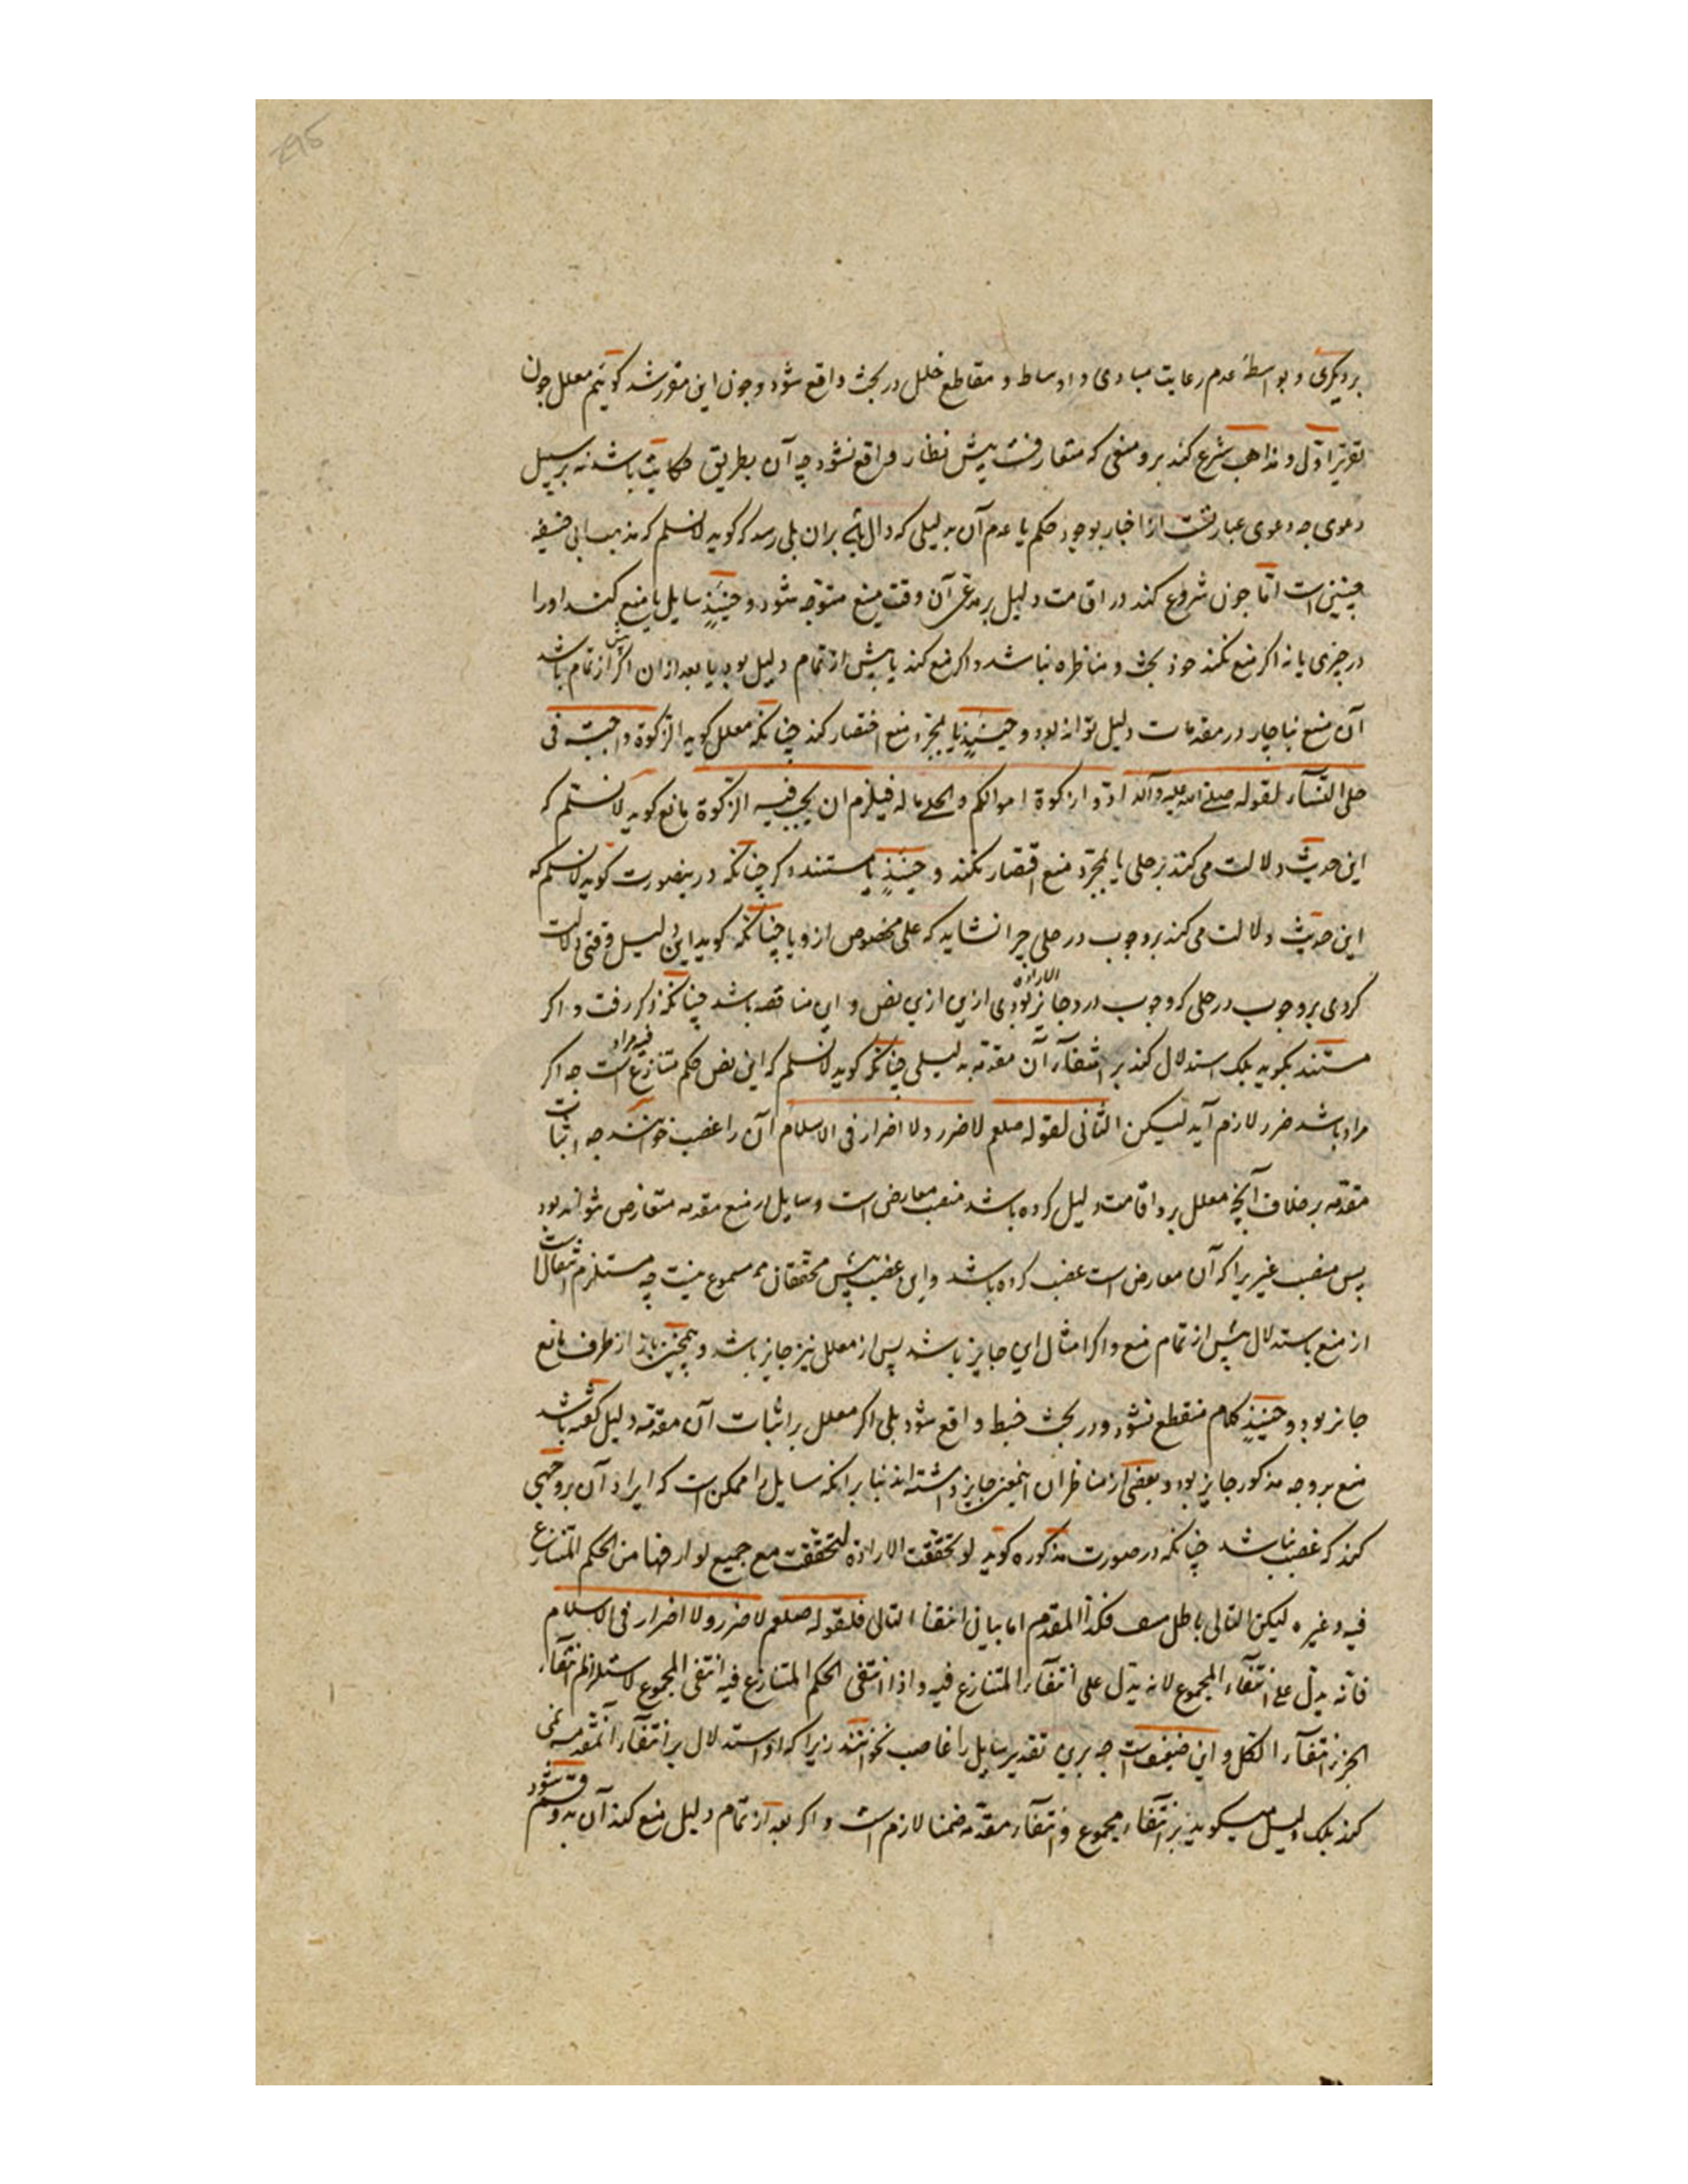 بر دیگری و بواسطهٔ عدم رعایت مبادی و اوساط و مقاطع خلل در بحث واقع شود و چون این مقرر شد گوییم معلل چون
تقریر اقوال و مذاهب شرع کند برو منعی که متعارفست پیش نظار واقع نشود چه آن بطریق حکایت باشد نه بر سبیل
دعوی چه دعوی عبارتست از اخبار بوجود حکم یا عدم آن بدلیلی که دال باشد بران بلی رسد که گوید لانسلم که مذهب ابی حنیفه
چنین است اما چون شروع کند در اقامت دلیل بر مدعی آن وقت منع متوجه شود و حینئذ سایل یا منع کند او را
در چیزی یا نه اگر منع نکند خود بحث و مناظره نباشد و اگر منع کند یا پیش از تمام دلیل بود یا بعد از ان اگر پیش از تمام باشد
آن منع بناچار در مقدمات دلیل تواند بود و حینئذ یا بمجرد منع اختصار کند چنانکه معلل گوید الزکوة واجبة فی
حلی النساء لقوله صلی الله علیه وآله ادوا زکوة اموالکم و الحلی مال فیلزم ان یجب فیه الزکوة مانع گوید لانسلم که
این حدیث دلالت می کند بر حلی یا بمجرد منع اقتصار نکند و حینئذ یا مستند ذکر چنانکه درینصورت گوید لانسلم که
این حدیث دلالت می کند بر وجوب در حلی چرا نشاید که حلی مخصوص ازو یا چنانکه گوید این دلیل وقتی دلالت
کردی بر وجوب در حلی که وجوب درو جایز الارادة بودی ازین نص و این مناقضه باشد چنانکه ذکر رفت و اگر
مستند نگوید بلک استدلال کند بر انتفاء آن مقدمه بدلیلی چنانکه گوید لانسلم که این نص حکم متنازع فیه مراد است چه اگر
مراد باشد ضرر لازم آید لیکن الثانی لقوله صلعم لا ضرر ولا اضرار فی الاسلام آن را غصب خوانند چه اثبات
مقدمه بر خلاف آنچه معلل برو اقامت دلیل کرده باشد منصب معارض است و سایل از منع مقدمه متعارض نتواند بود
پس منصب غیر یرا که آن معارض است غصب کرده باشد و این غصب پیش محققان مسموع نیست چه مستلزم انتقالست
از منع باستدلال پیش از تمام منع و اگر امثال این جایز باشد پس از معلل نیز جایز باشد و همچنین باز از طرف مانع
جایز بود و حینئذ کلام منقطع نشود و در بحث خبط واقع شود بلی اگر معلل بر اثبات آن مقدمه دلیل گفته باشد
منع بر وجه مذکور جایز بود و بعضی از مناظران اینمعنی جایز داشته اند بنا برانکه سایل را ممکن است که ایراد آن بر وجهی
کند که غصب نباشد چنانکه در صورت مذکوره گوید لو تحققت الارادة لتحققت مع جمیع لوازمها من الحکم المتنازع
فیه و غیره لیکن التالی باطل فکذا المقدم اما بیان انتفاء التالی فلقوله صلعم لا ضرر ولا اضرار فی الاسلام
فانه یدل علی انتفاء المجموع لانه یدل علی انتفاء المتنازع فیه و اذا انتفی الحکم المتنازع فیه انتفی المجموع لاستلزام انتفاء
الجزء انتفاء الکل و این ضعیفست چه برین تقدیر سایل را غاصب نخوانند زیرا که او استدلال بر انتفاء آن مقدمه نمی
کند بلک دلیل میگوید بر انتفاء مجموع و انتفاء مقدمه ضمنا لازم است و اگر بعد از تمام دلیل منع کند آن بدو قسم شود